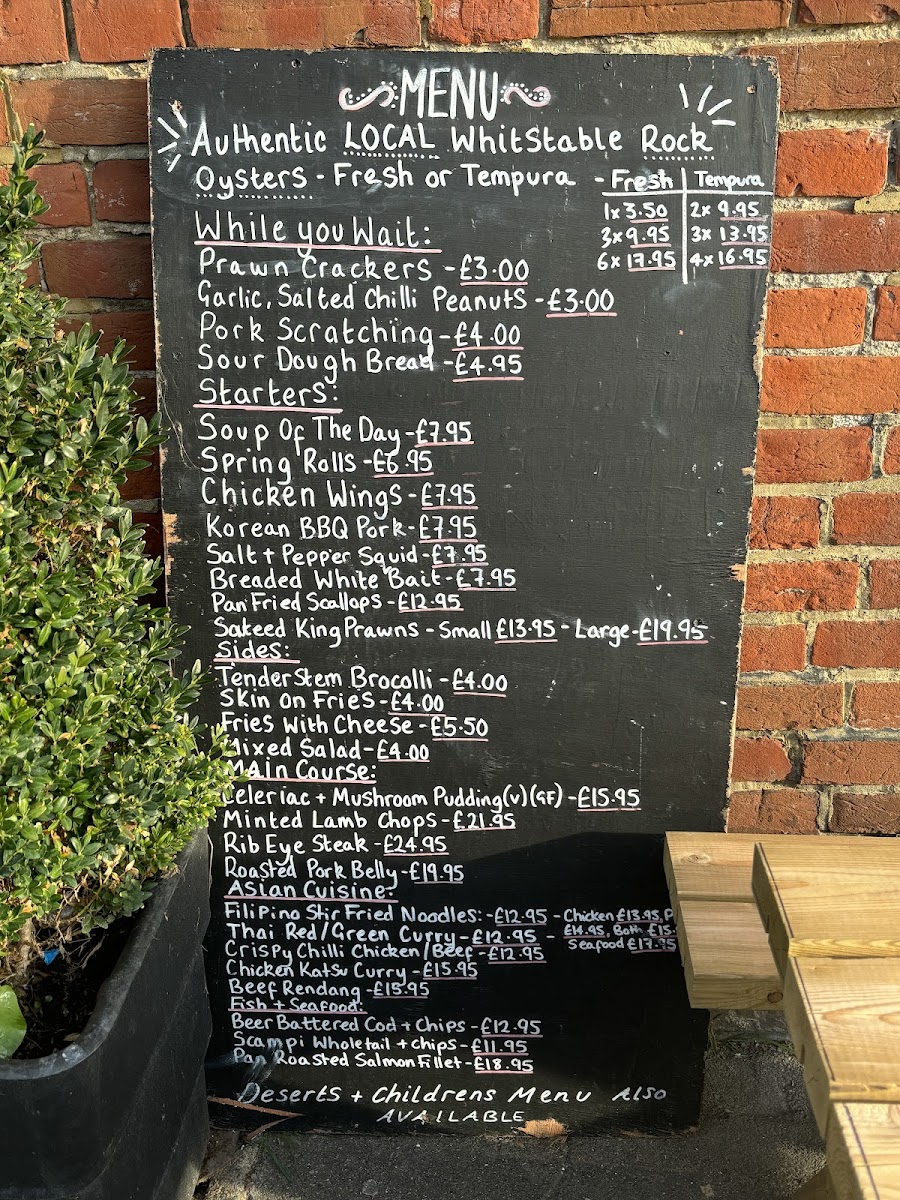 MENU
Authentic LOCAL Whitstable Rock
Oysters - Fresh or Tempura - Fresh | Tempura
1x 3.50 | 2x 9.95
3x 9.95 | 3x 13.95
6x 17.95 | 4x 16.95
While you Wait:
Prawn Crackers - £3.00
Garlic, Salted Chilli Peanuts - £3.00
Pork Scratching - £4.00
Sour Dough Bread - £4.95
Starters:
Soup Of The Day - £7.95
Spring Rolls - £6.95
Chicken Wings - £7.95
Korean BBQ Pork - £7.95
Salt + Pepper Squid - £7.95
Breaded White Bait - £7.95
Pan Fried Scallops - £12.95
Sateed King Prawns - Small £13.95 - Large - £19.95
Sides:
Tender Stem Brocolli - £4.00
Skin on Fries - £4.00
Fries with Cheese - £5.50
Mixed Salad - £4.00
Main Course:
Celeriac + Mushroom Pudding (V) (GF) - £15.95
Minted Lamb Chops - £21.95
Rib Eye Steak - £24.95
Roasted Pork Belly - £19.95
Asian Cuisine:
Filipino Stir Fried Noodles: - £12.95 - Chicken £13.95, P
Thai Red/Green Curry - £12.95 - £14.95, Both £15.
Seafood £17.95
Crispy Chilli Chicken/Beef - £12.95
Chicken Katsu Curry - £15.95
Beef Rendang - £15.95
Fish + Seafood:
Beer Battered Cod + Chips - £12.95
Scampi Wholetail + chips - £11.95
Pan Roasted Salmon Fillet - £18.95
Deserts + Childrens Menu Also
AVAILABLE